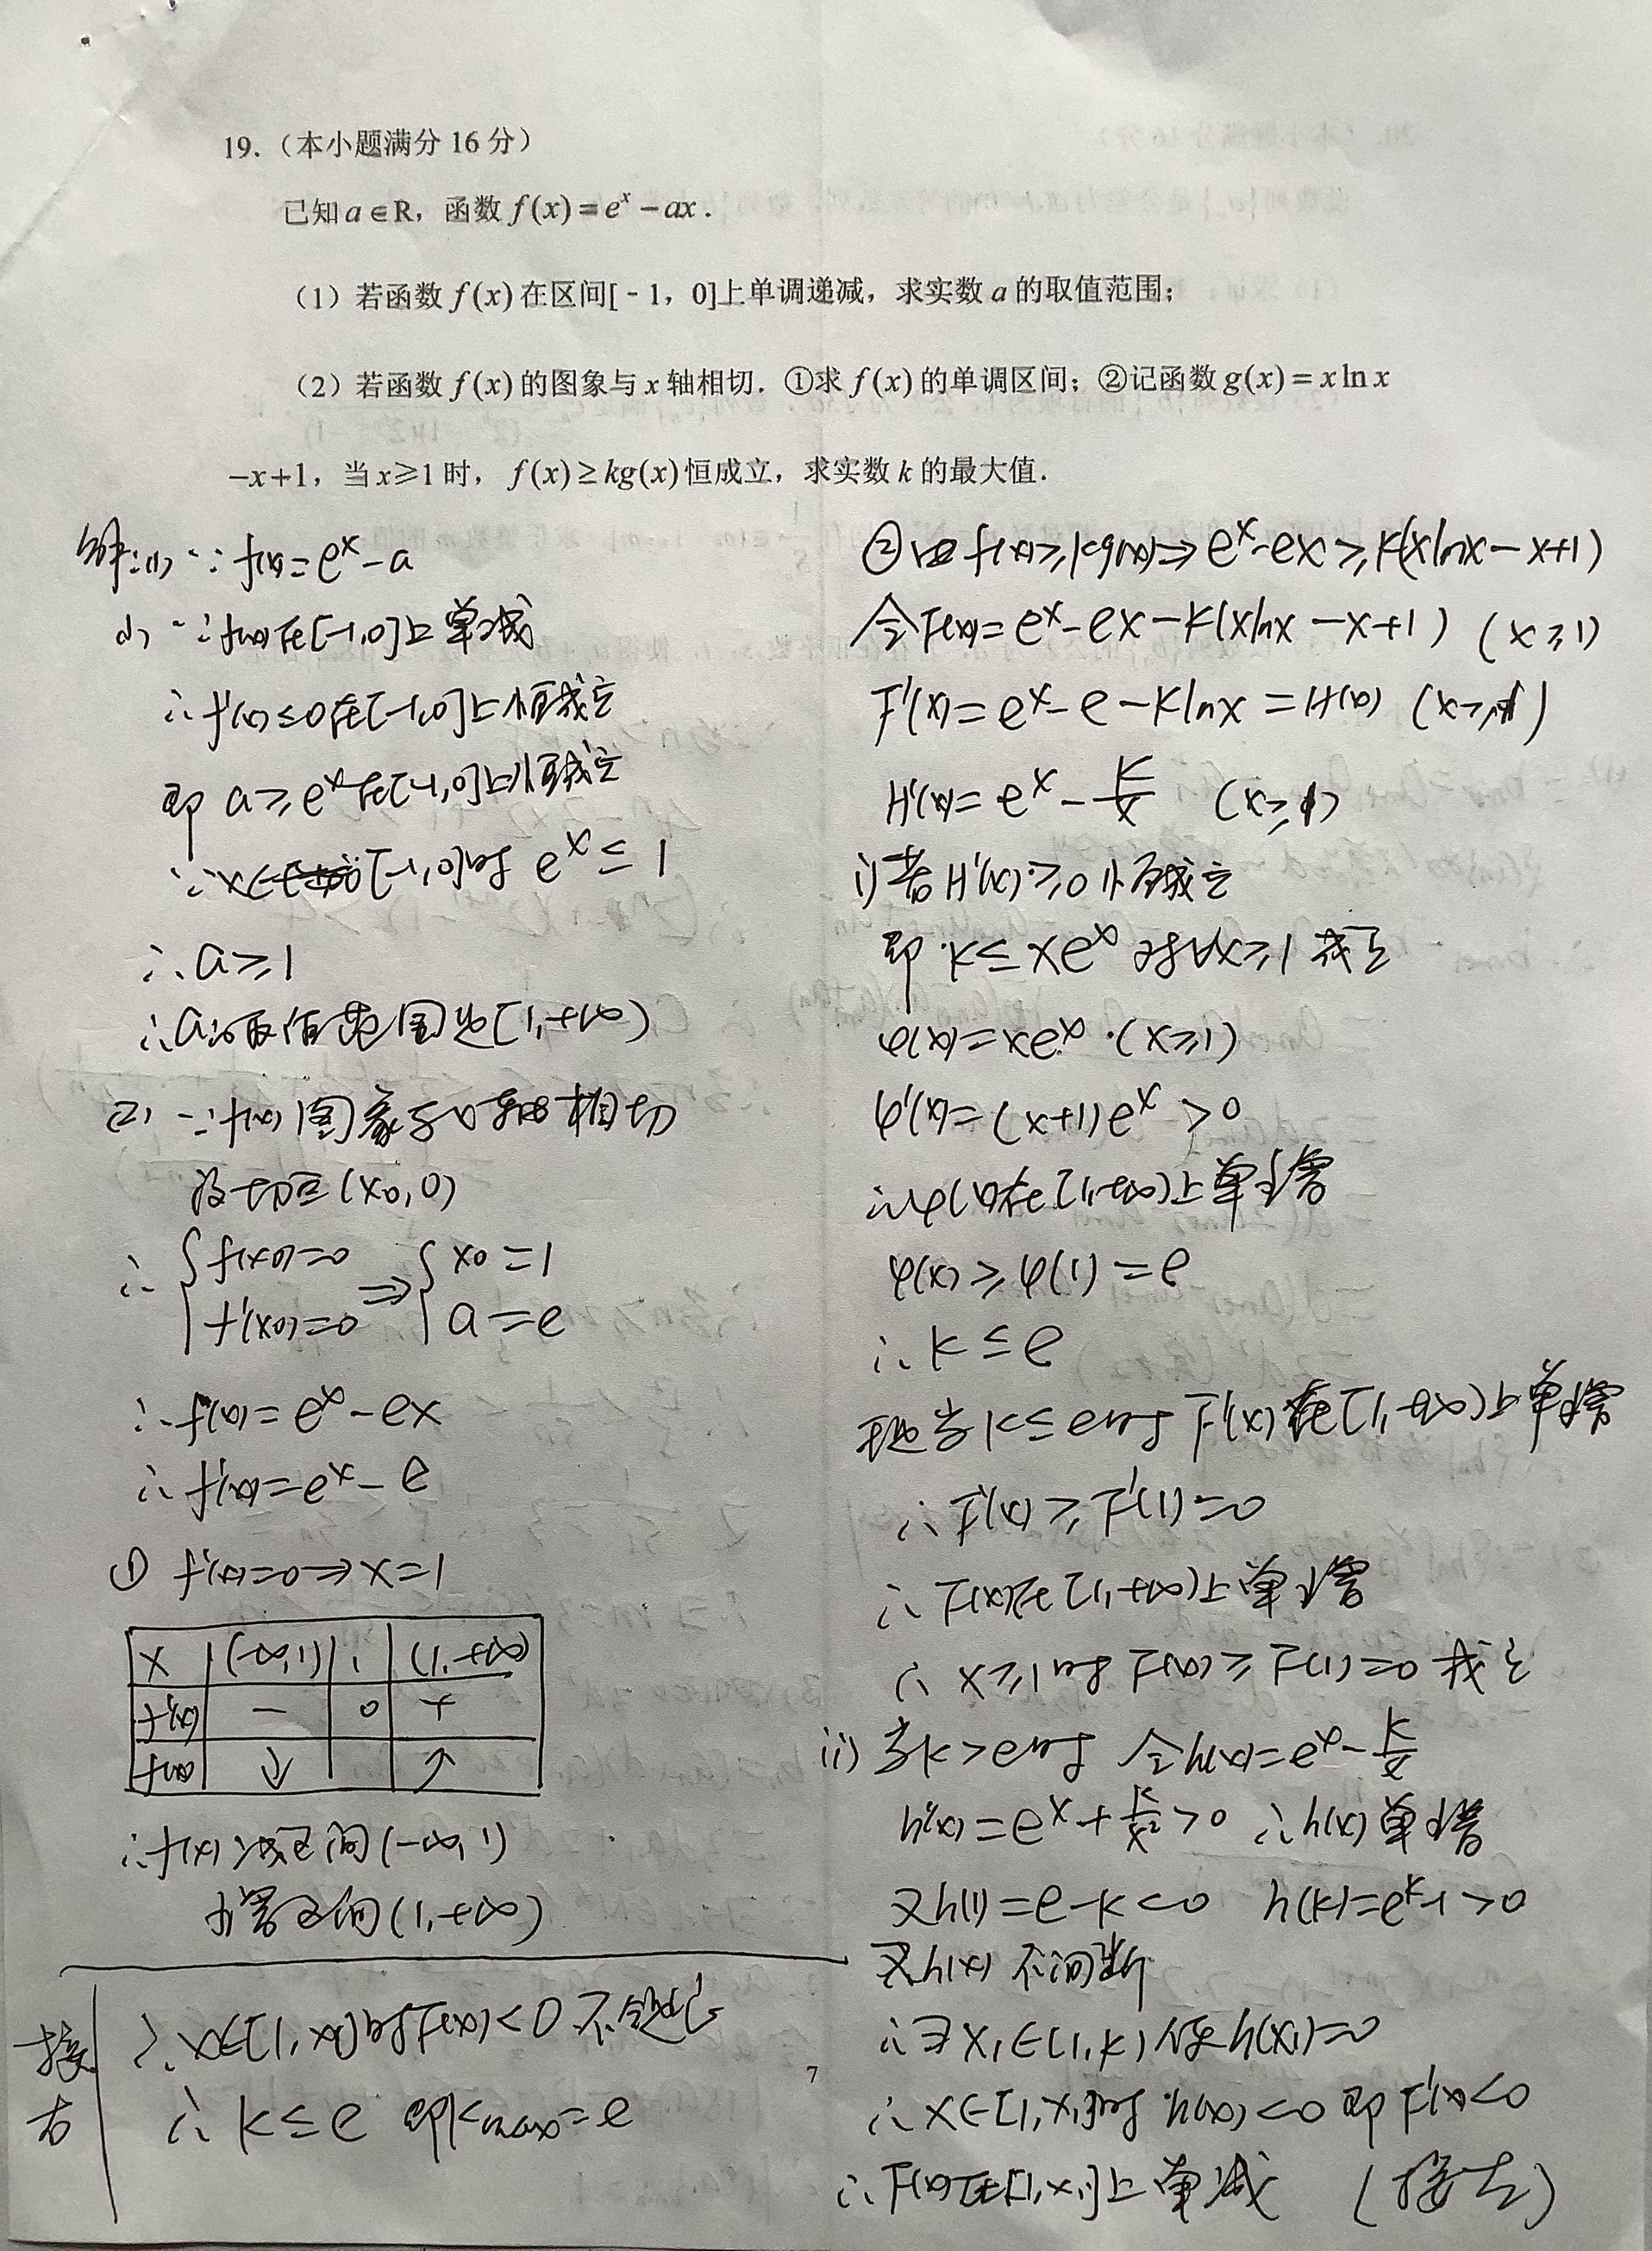 19.（本小题满分 16 分）
已知 a∈R，函数 f(x)=eˣ－ax．
（1）若函数 f(x) 在区间[－1，0]上单调递减，求实数 a 的取值范围；
（2）若函数 f(x) 的图象与 x 轴相切．①求 f(x) 的单调区间；②记函数 g(x)=x ln x
－x+1，当 x≥1 时，f(x)≥kg(x) 恒成立，求实数 k 的最大值．
解:(1) ∵ f'(x)=eˣ-a
(1) ∵f(x)在[-1,0]上单减
∴f'(x)≤0在[-1,0]上恒成立
即 a≥eˣ在[-1,0]上恒成立
∵x∈[-1,0]时 eˣ≤1
∴a≥1
∴a的取值范围为[1,+∞)
(2) ∵f(x)图象与x轴相切
设切点(x₀,0)
∴ {f(x₀)=0 f'(x₀)=0 ⇒ {x₀=1 a=e
∴f(x)=eˣ-ex
∴f'(x)=eˣ-e
① f'(x)=0⇒x=1
x (-∞,1) 1 (1,+∞)
f'(x) － 0 +
f(x) ↓ ↑
∴f(x)减区间(-∞,1)
增区间(1,+∞)
② f(x)≥kg(x)⇒eˣ-ex≥k(xlnx-x+1)
令F(x)=eˣ-ex-k(xlnx-x+1) (x≥1)
F'(x)=eˣ-e-klnx=H(x) (x≥1)
H'(x)=eˣ-k/x (x≥1)
i)若H'(x)≥0恒成立
即 k≤xeˣ对∀x≥1成立
φ(x)=xeˣ·(x≥1)
φ'(x)=(x+1)eˣ>0
∴φ(x)在[1,+∞)上单增
φ(x)≥φ(1)=e
∴k≤e
当k≤e时F'(x)在[1,+∞)上单增
∴F'(x)≥F'(1)=0
∴F(x)在[1,+∞)上单增
∴x≥1时F(x)≥F(1)=0成立
ii)当k>e时 令h(x)=eˣ-k/x
h'(x)=eˣ+k/x²>0 ∴h(x)单增
又h(1)=e-k<0 h(k)=eᵏ-1>0
又h(x)不间断
∴∃x₁∈(1,k)使h(x₁)=0
∴x∈[1,x₁]时h(x)<0即F'(x)<0
∴F(x)在[1,x₁]上单减 (接左)
接右
∴x∈[1,x₁]时F(x)<0不合题意
∴k≤e 即kmax=e
7